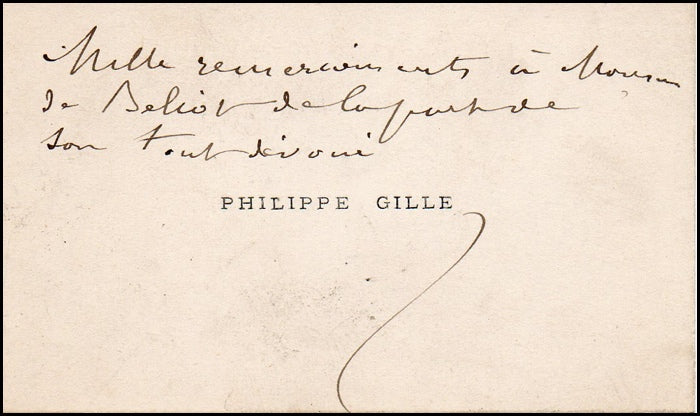 Mille remerciements à Monsieur
de Beliot de la part de
son tout dévoué
PHILIPPE GILLE